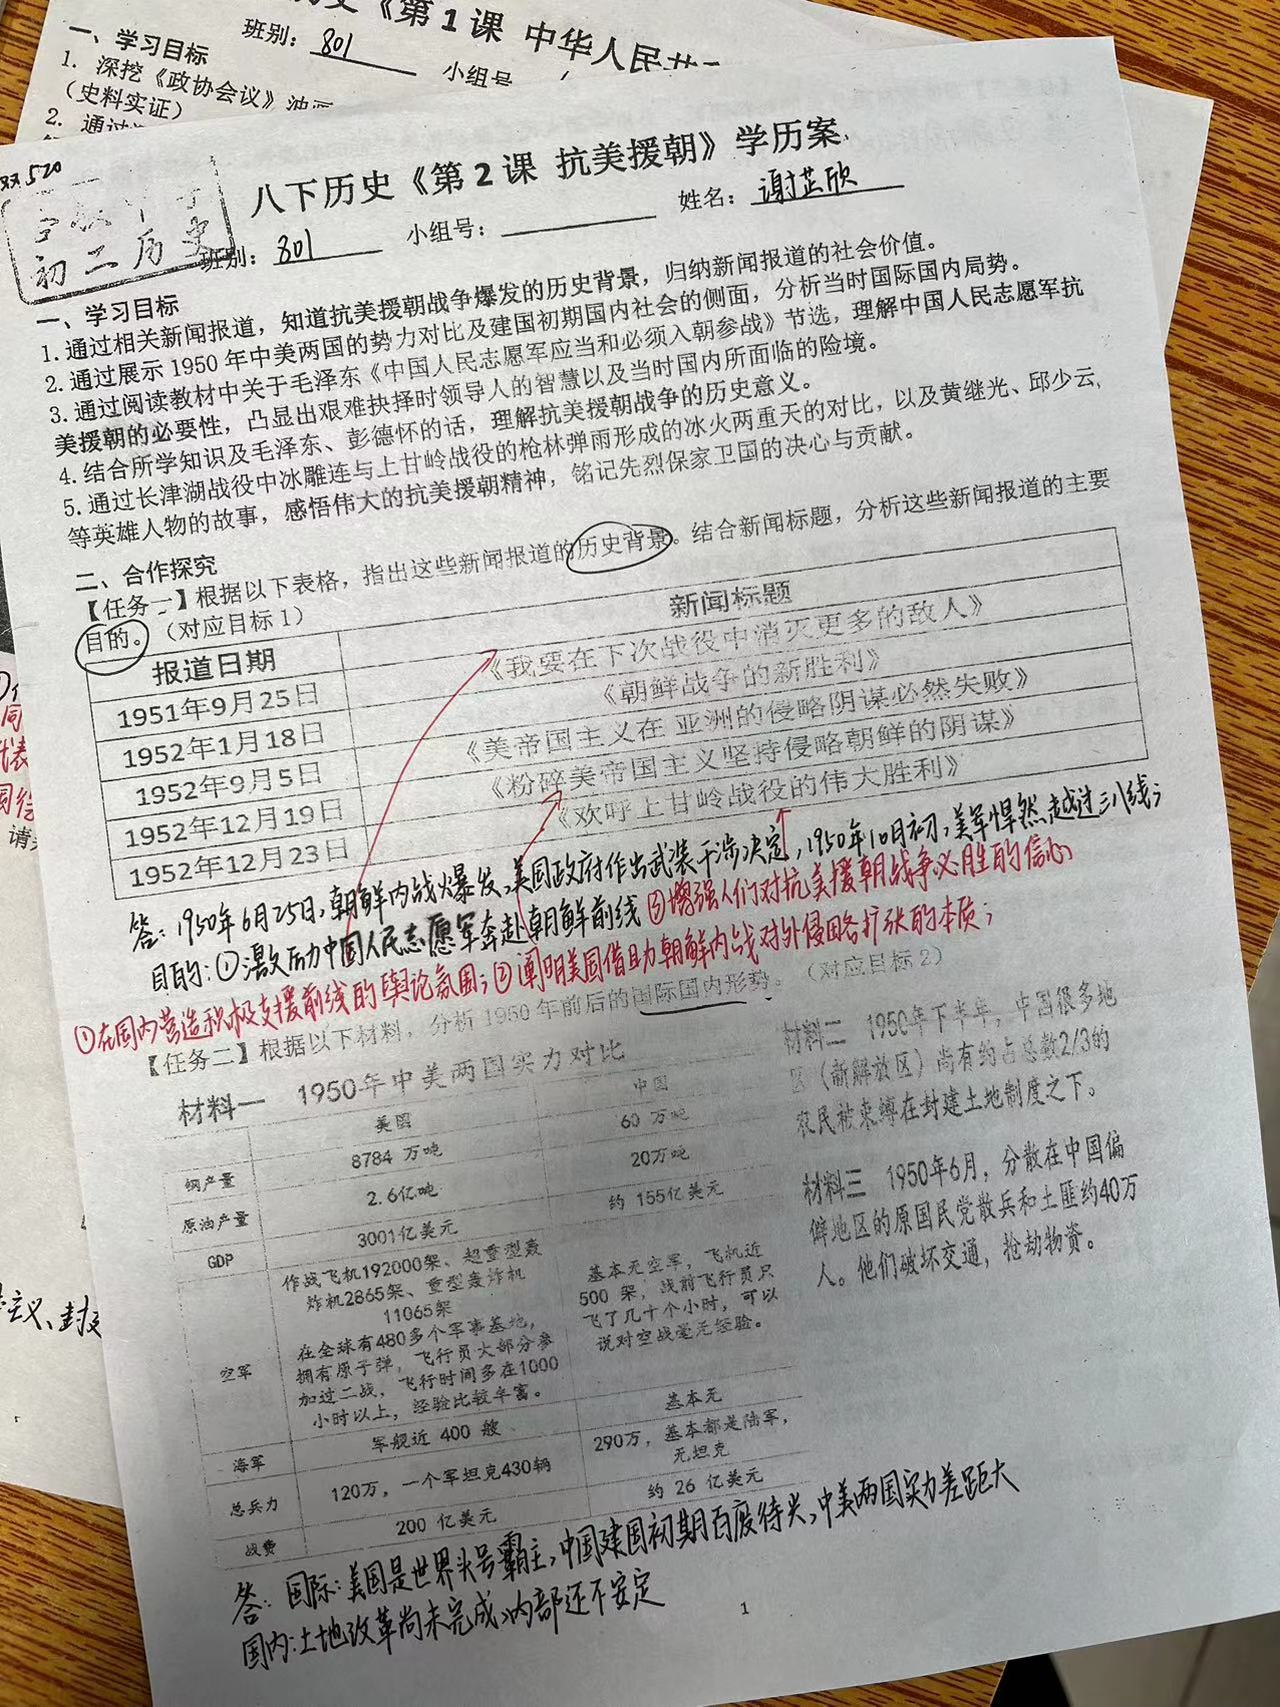 《第1课 中华人民共
班别：801 小组号
一、学习目标
1. 深挖《政协会议》油画
（史料实证）
2. 通过
520
初二历史
八下历史《第2课 抗美援朝》学历案
班别：801 小组号： 姓名：谢芷欣
一、学习目标
1. 通过相关新闻报道，知道抗美援朝战争爆发的历史背景，归纳新闻报道的社会价值。
2. 通过展示 1950 年中美两国的势力对比及建国初期国内社会的侧面，分析当时国际国内局势。
3. 通过阅读教材中关于毛泽东《中国人民志愿军应当和必须入朝参战》节选，理解中国人民志愿军抗
美援朝的必要性，凸显出艰难抉择时领导人的智慧以及当时国内所面临的险境。
4. 结合所学知识及毛泽东、彭德怀的话，理解抗美援朝战争的历史意义。
5. 通过长津湖战役中冰雕连与上甘岭战役的枪林弹雨形成的冰火两重天的对比，以及黄继光、邱少云，
等英雄人物的故事，感悟伟大的抗美援朝精神，铭记先烈保家卫国的决心与贡献。
二、合作探究
【任务一】根据以下表格，指出这些新闻报道的历史背景。结合新闻标题，分析这些新闻报道的主要
目的。（对应目标 1）
报道日期 新闻标题
1951年9月25日 《我要在下次战役中消灭更多的敌人》
1952年1月18日 《朝鲜战争的新胜利》
1952年9月5日 《美帝国主义在 亚洲的侵略阴谋必然失败》
1952年12月19日 《粉碎美帝国主义坚持侵略朝鲜的阴谋》
1952年12月23日 《欢呼上甘岭战役的伟大胜利》
答：1950年6月25日，朝鲜内战爆发，美国政府作出武装干涉决定，1950年10月初，美军悍然越过三八线；
目的：①激励中国人民志愿军奔赴朝鲜前线 ③增强人们对抗美援朝战争必胜的信心
①在国内营造积极支援前线的舆论氛围；②阐明美国借助朝鲜内战对外侵略扩张的本质；
【任务二】根据以下材料，分析 1950 年前后的国际国内形势。（对应目标 2）
材料一 1950年中美两国实力对比
美国 中国
钢产量 8784 万吨 60 万吨
原油产量 2.6亿吨 20万吨
GDP 3001亿美元 约 155亿美元
空军 作战飞机192000架、超重型轰
炸机2865架、重型轰炸机
11065架
在全球有480多个军事基地，
拥有原子弹，飞行员大部分参
加过二战，飞行时间多在1000
小时以上，经验比较丰富。
基本无空军，飞机近
500 架，战前飞行员只
飞了几十个小时，可以
说对空战毫无经验。
海军 军舰近 400 艘 基本无
总兵力 120万，一个军坦克430辆 290万，基本都是陆军，
无坦克
战费 200 亿美元 约 26 亿美元
材料二 1950年下半年，中国很多地
区（新解放区）尚有约占总数2/3的
农民被束缚在封建土地制度之下。
材料三 1950年6月，分散在中国偏
僻地区的原国民党散兵和土匪约40万
人。他们破坏交通，抢劫物资。
答：国际：美国是世界头号霸主，中国建国初期百废待兴，中美两国实力差距大
国内：土地改革尚未完成，内部还不安定
1